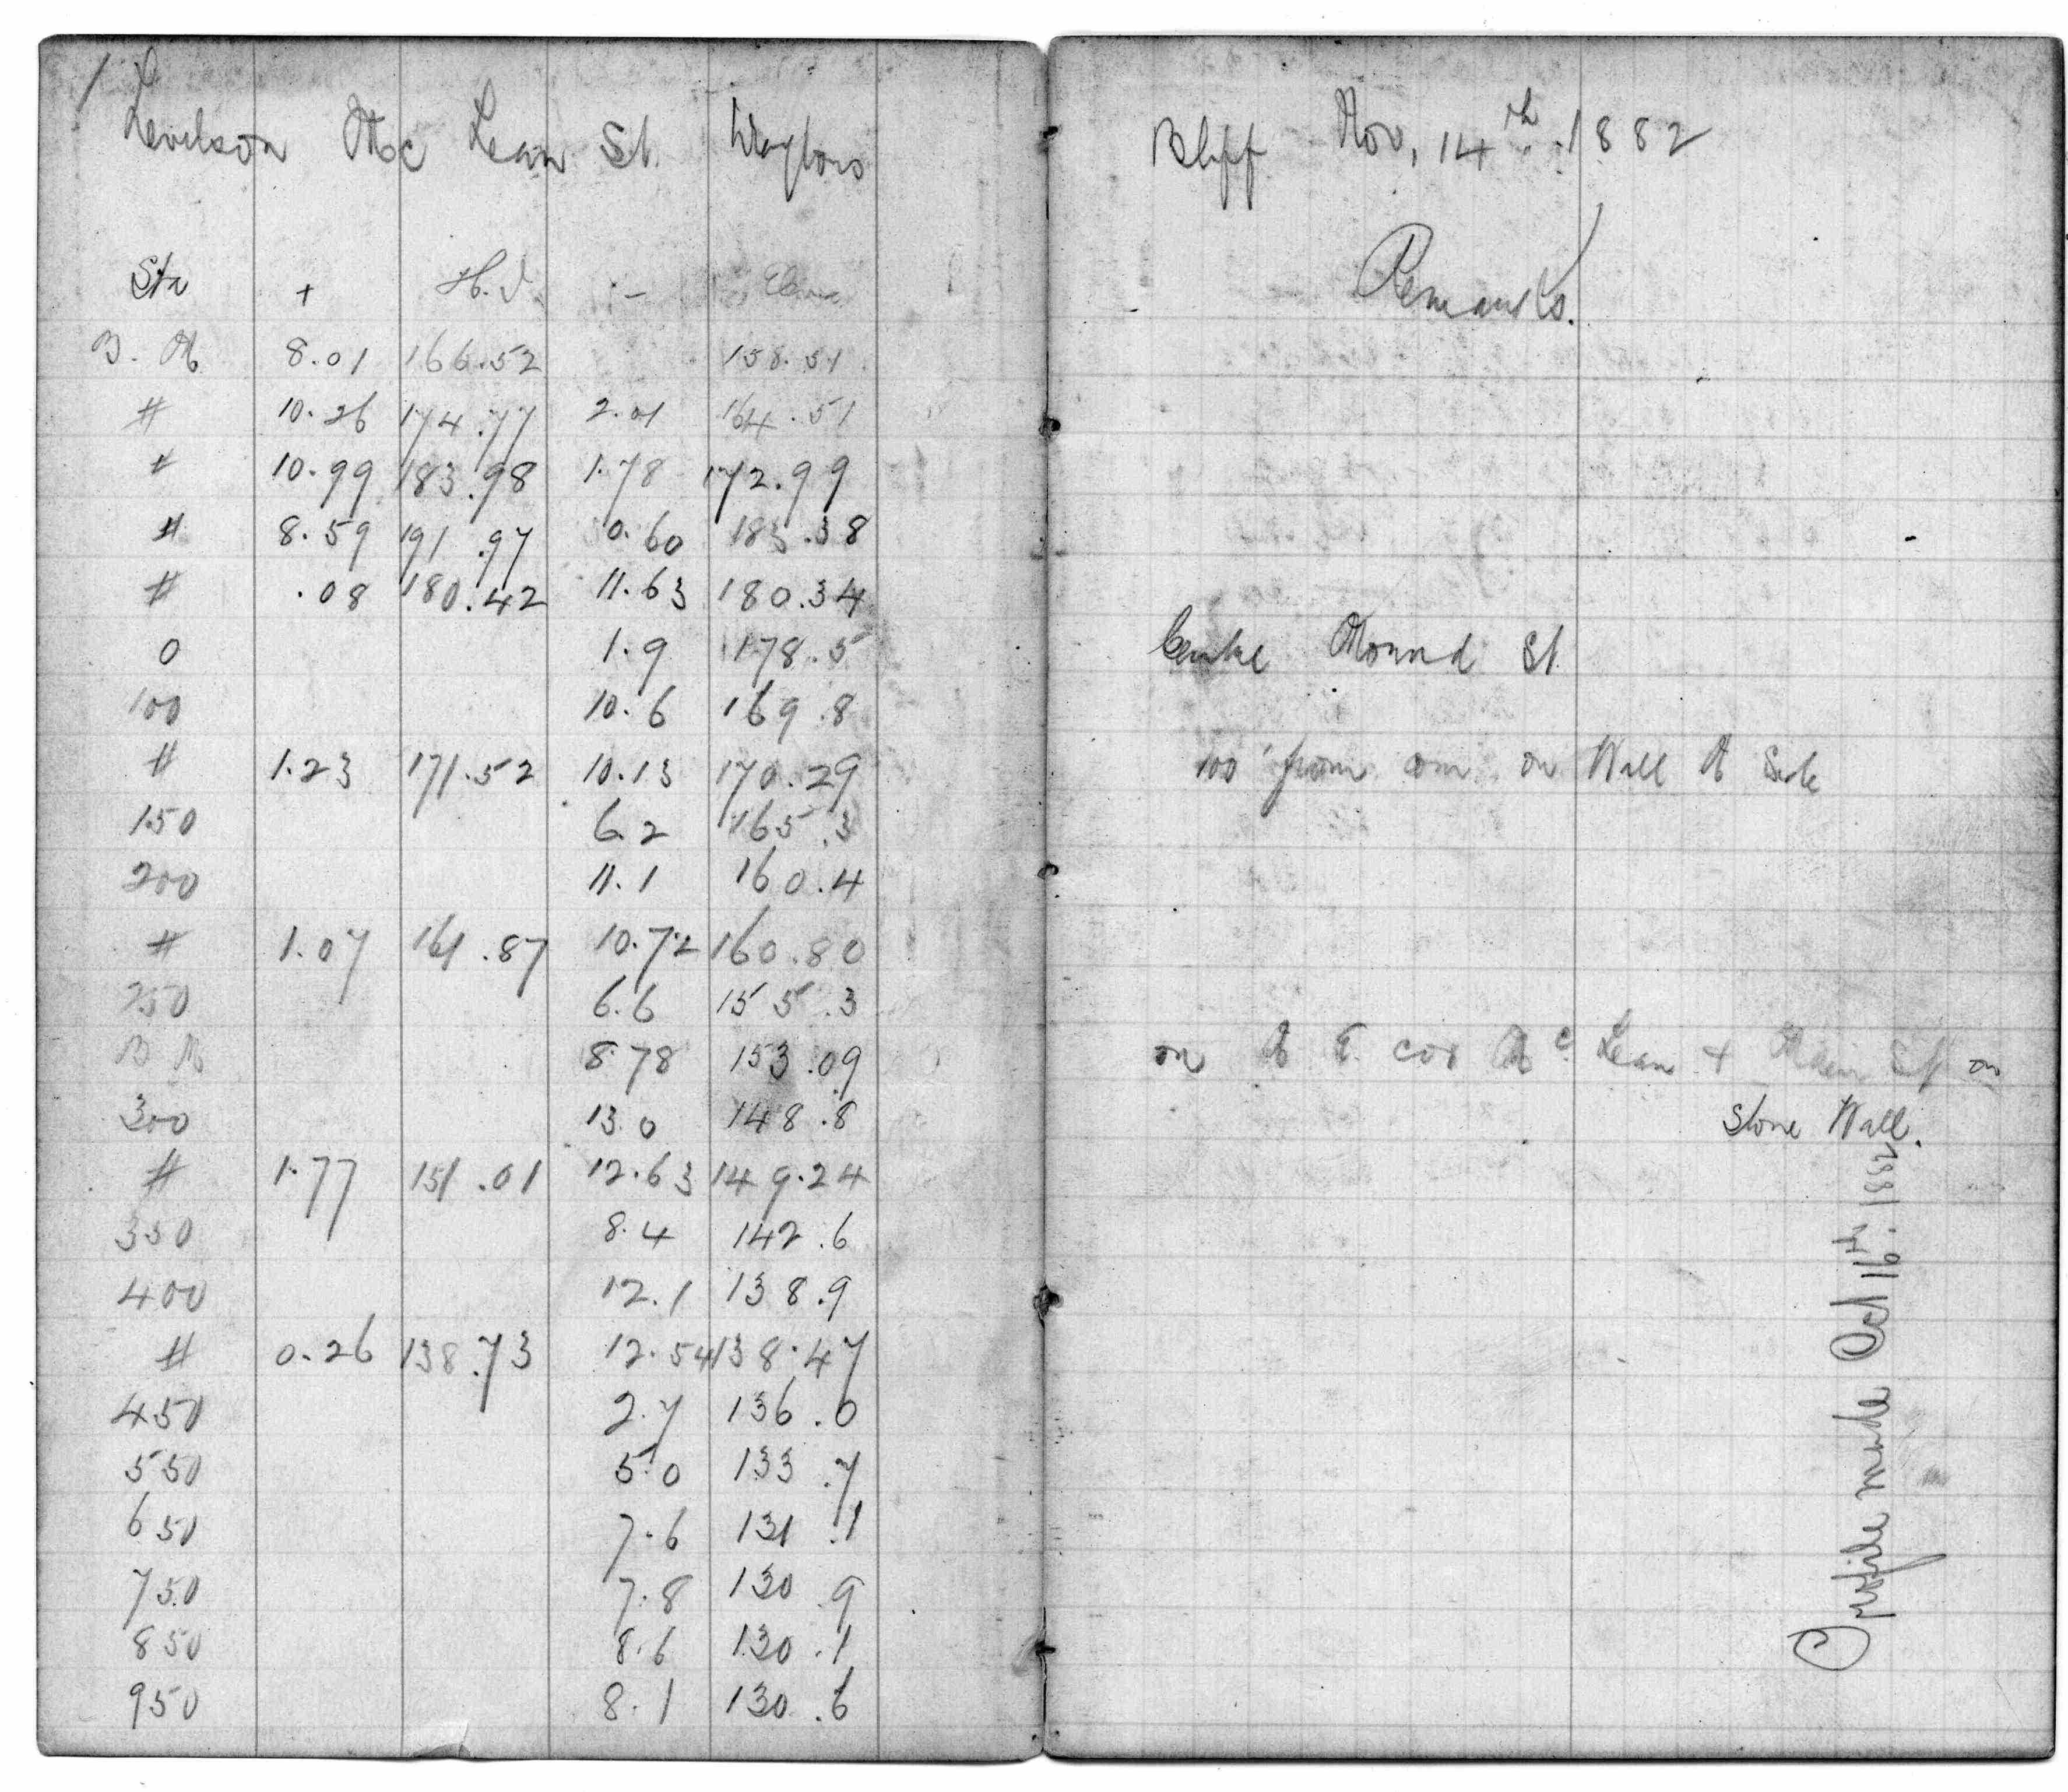 1
Levels on Mc Lean St. Waybors Bluff Nov, 14th. 1882
Sta + H.I. - Elev Remarks.
B. M 8.01 166.52 158.51
# 10.26 174.77 2.01 164.51
# 10.99 183.98 1.78 172.99
# 8.59 191.97 0.60 183.38
# .08 180.42 11.63 180.34
0 1.9 178.5 Centre Mound St
100 10.6 169.8
# 1.23 171.52 10.13 170.29 100' from on Wall N Side
150 6.2 165.3
200 11.1 160.4
# 1.07 161.87 10.72 160.80
250 6.6 155.3
B M 8.78 153.09 on N E. cor Mc. Lean + Main St on
Stone Wall.
300 13.0 148.8
# 1.77 151.01 12.63 149.24
350 8.4 142.6
400 12.1 138.9
# 0.26 138.73 12.54 138.47
450 2.7 136.0
550 5.0 133.7
650 7.6 131.1
750 7.8 130.9
850 8.6 130.1
950 8.1 130.6
Profile made Oct 16th. 1882